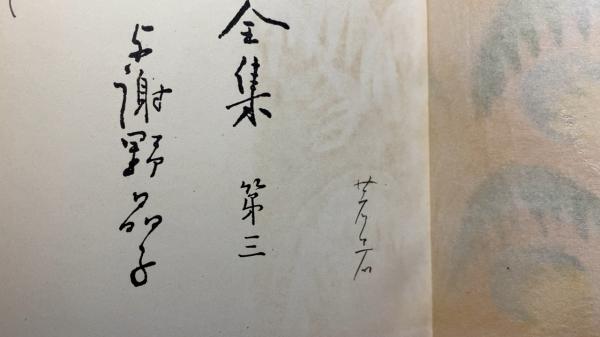 全集 第三
与謝野晶子